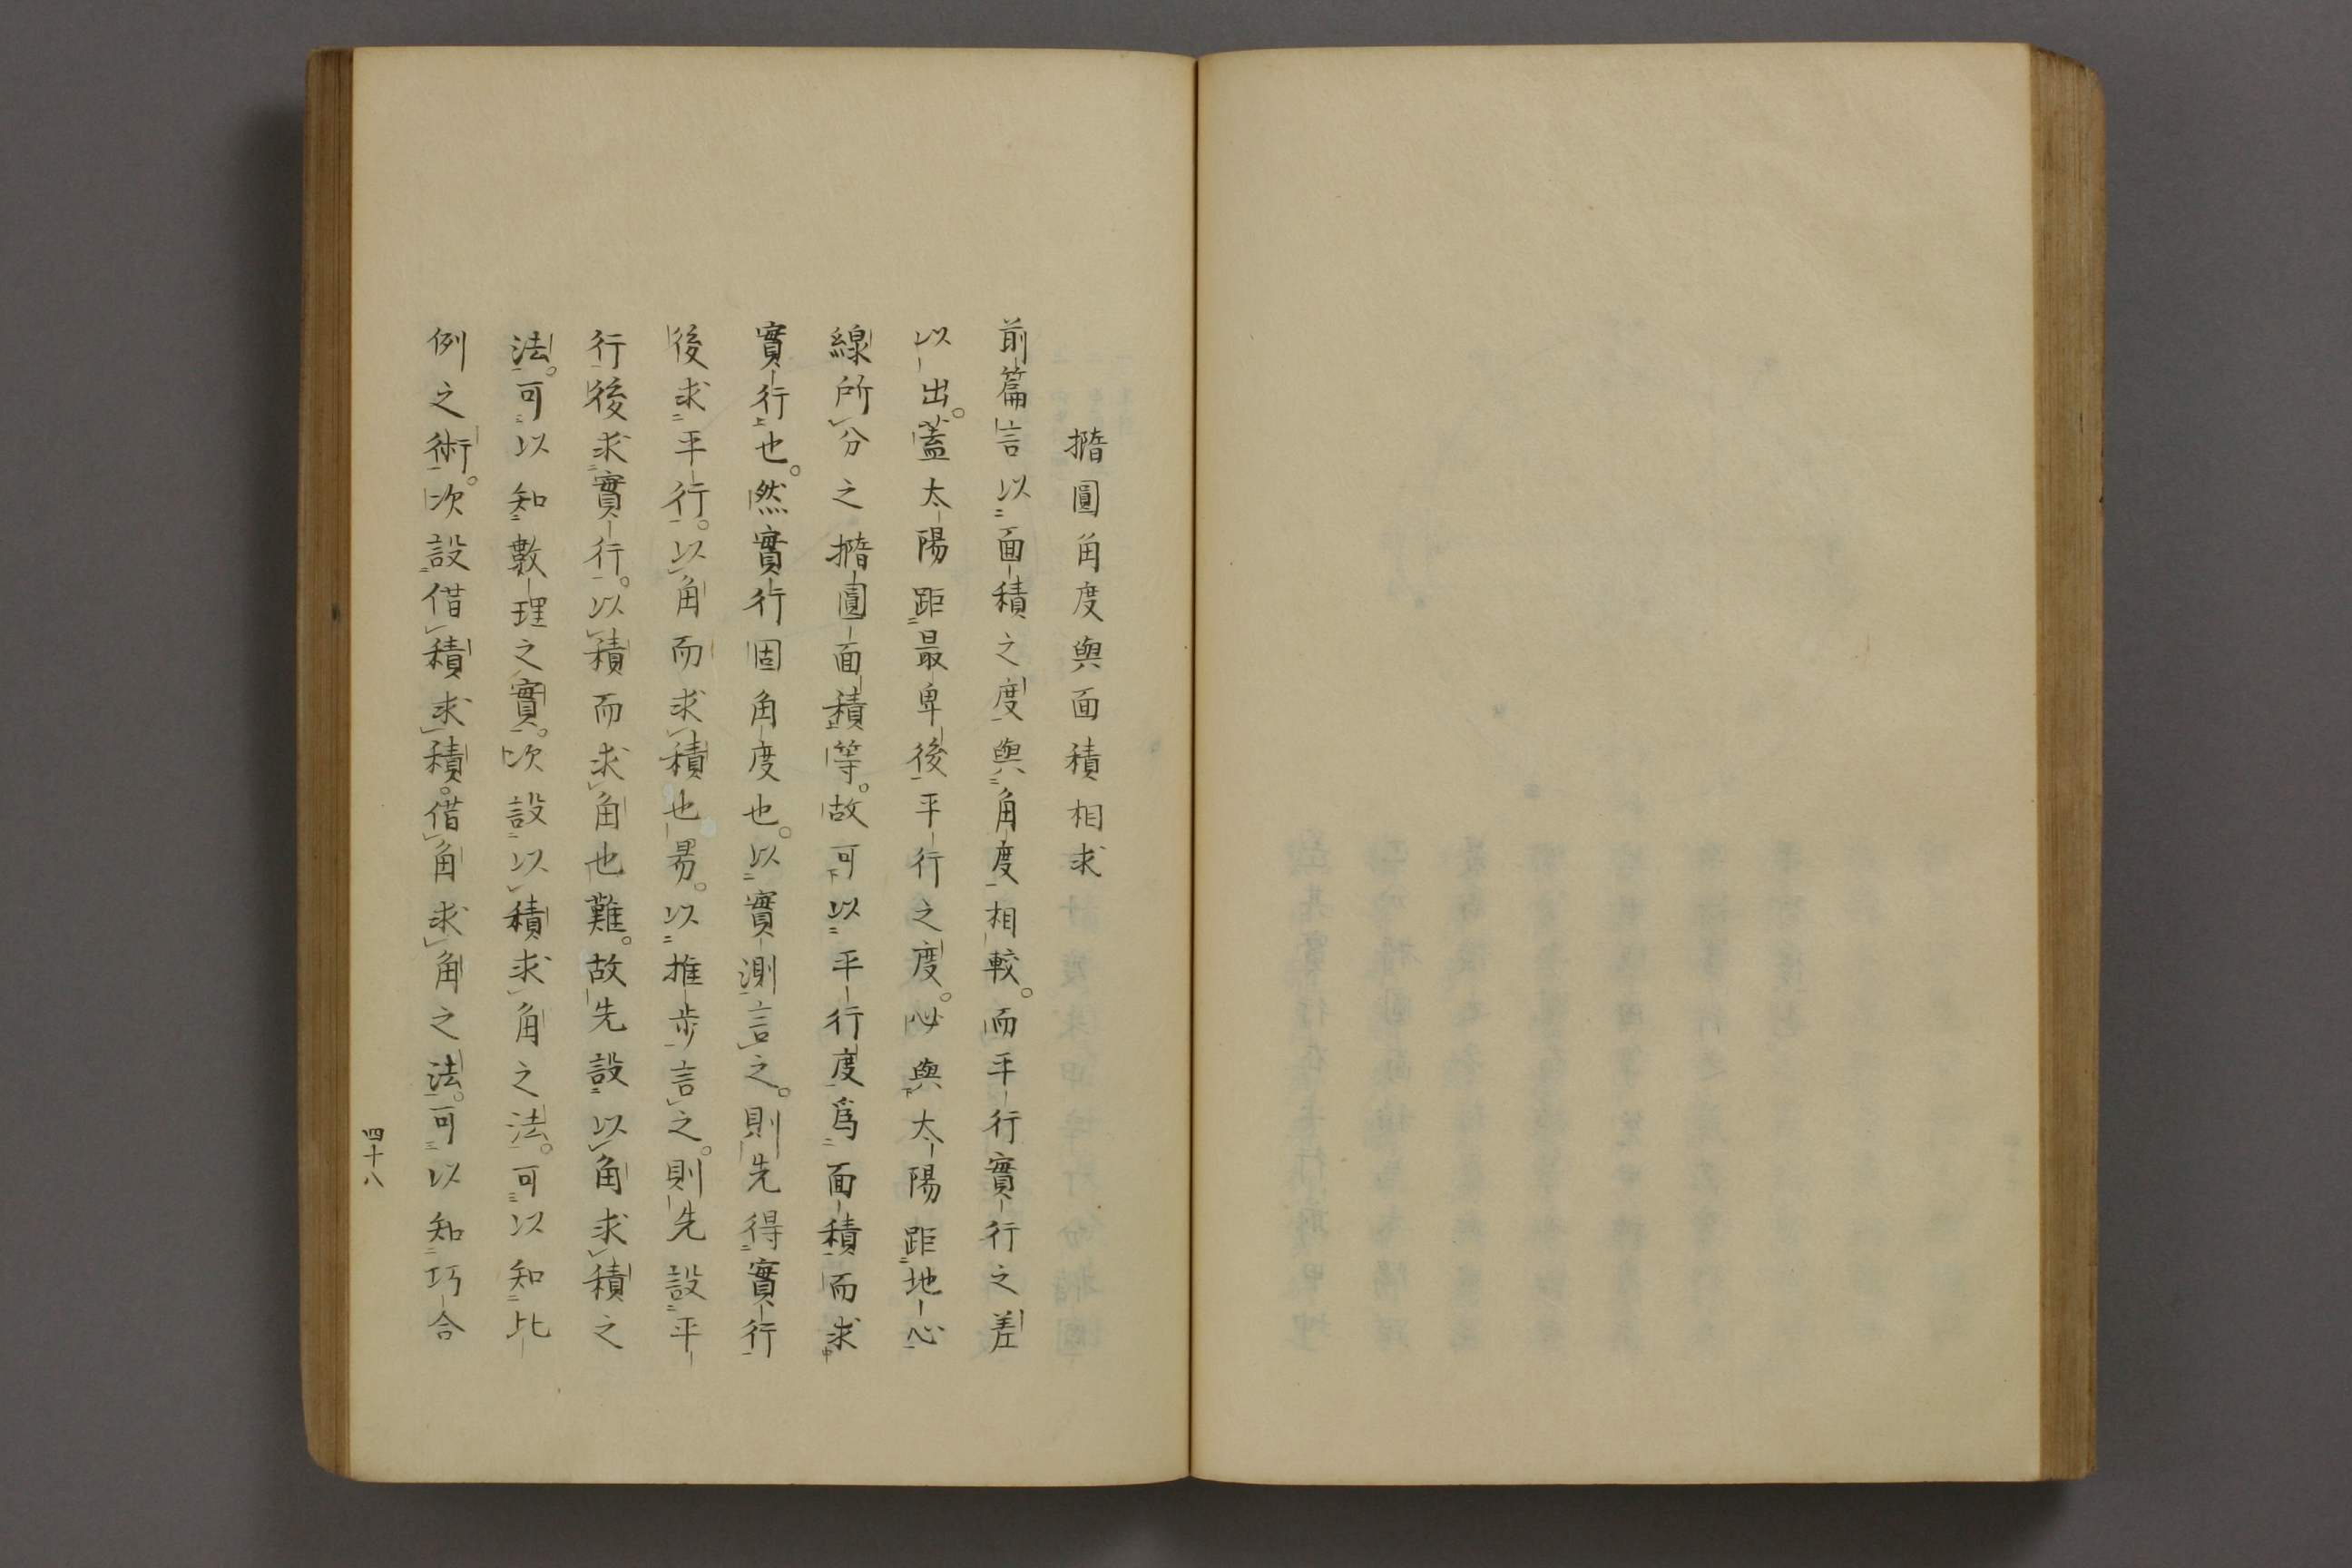 撱圓角度與面積相求
前篇言以面積之度與角度相較。而平行實行之差
以出。蓋太陽距最卑後平行之度。必與太陽距地心
線所分之撱圓面積等。故可以平行度爲面積而求
實行也。然實行固角度也。以實測言之。則先得實行
後求平行。以角而求積也易。以推步言之。則先設平
行後求實行。以積而求角也難。故先設以角求積之
法。可以知數理之實。次設以積求角之法。可以知比
例之術。次設借積求積。借角求角之法。可以知巧合
四十八